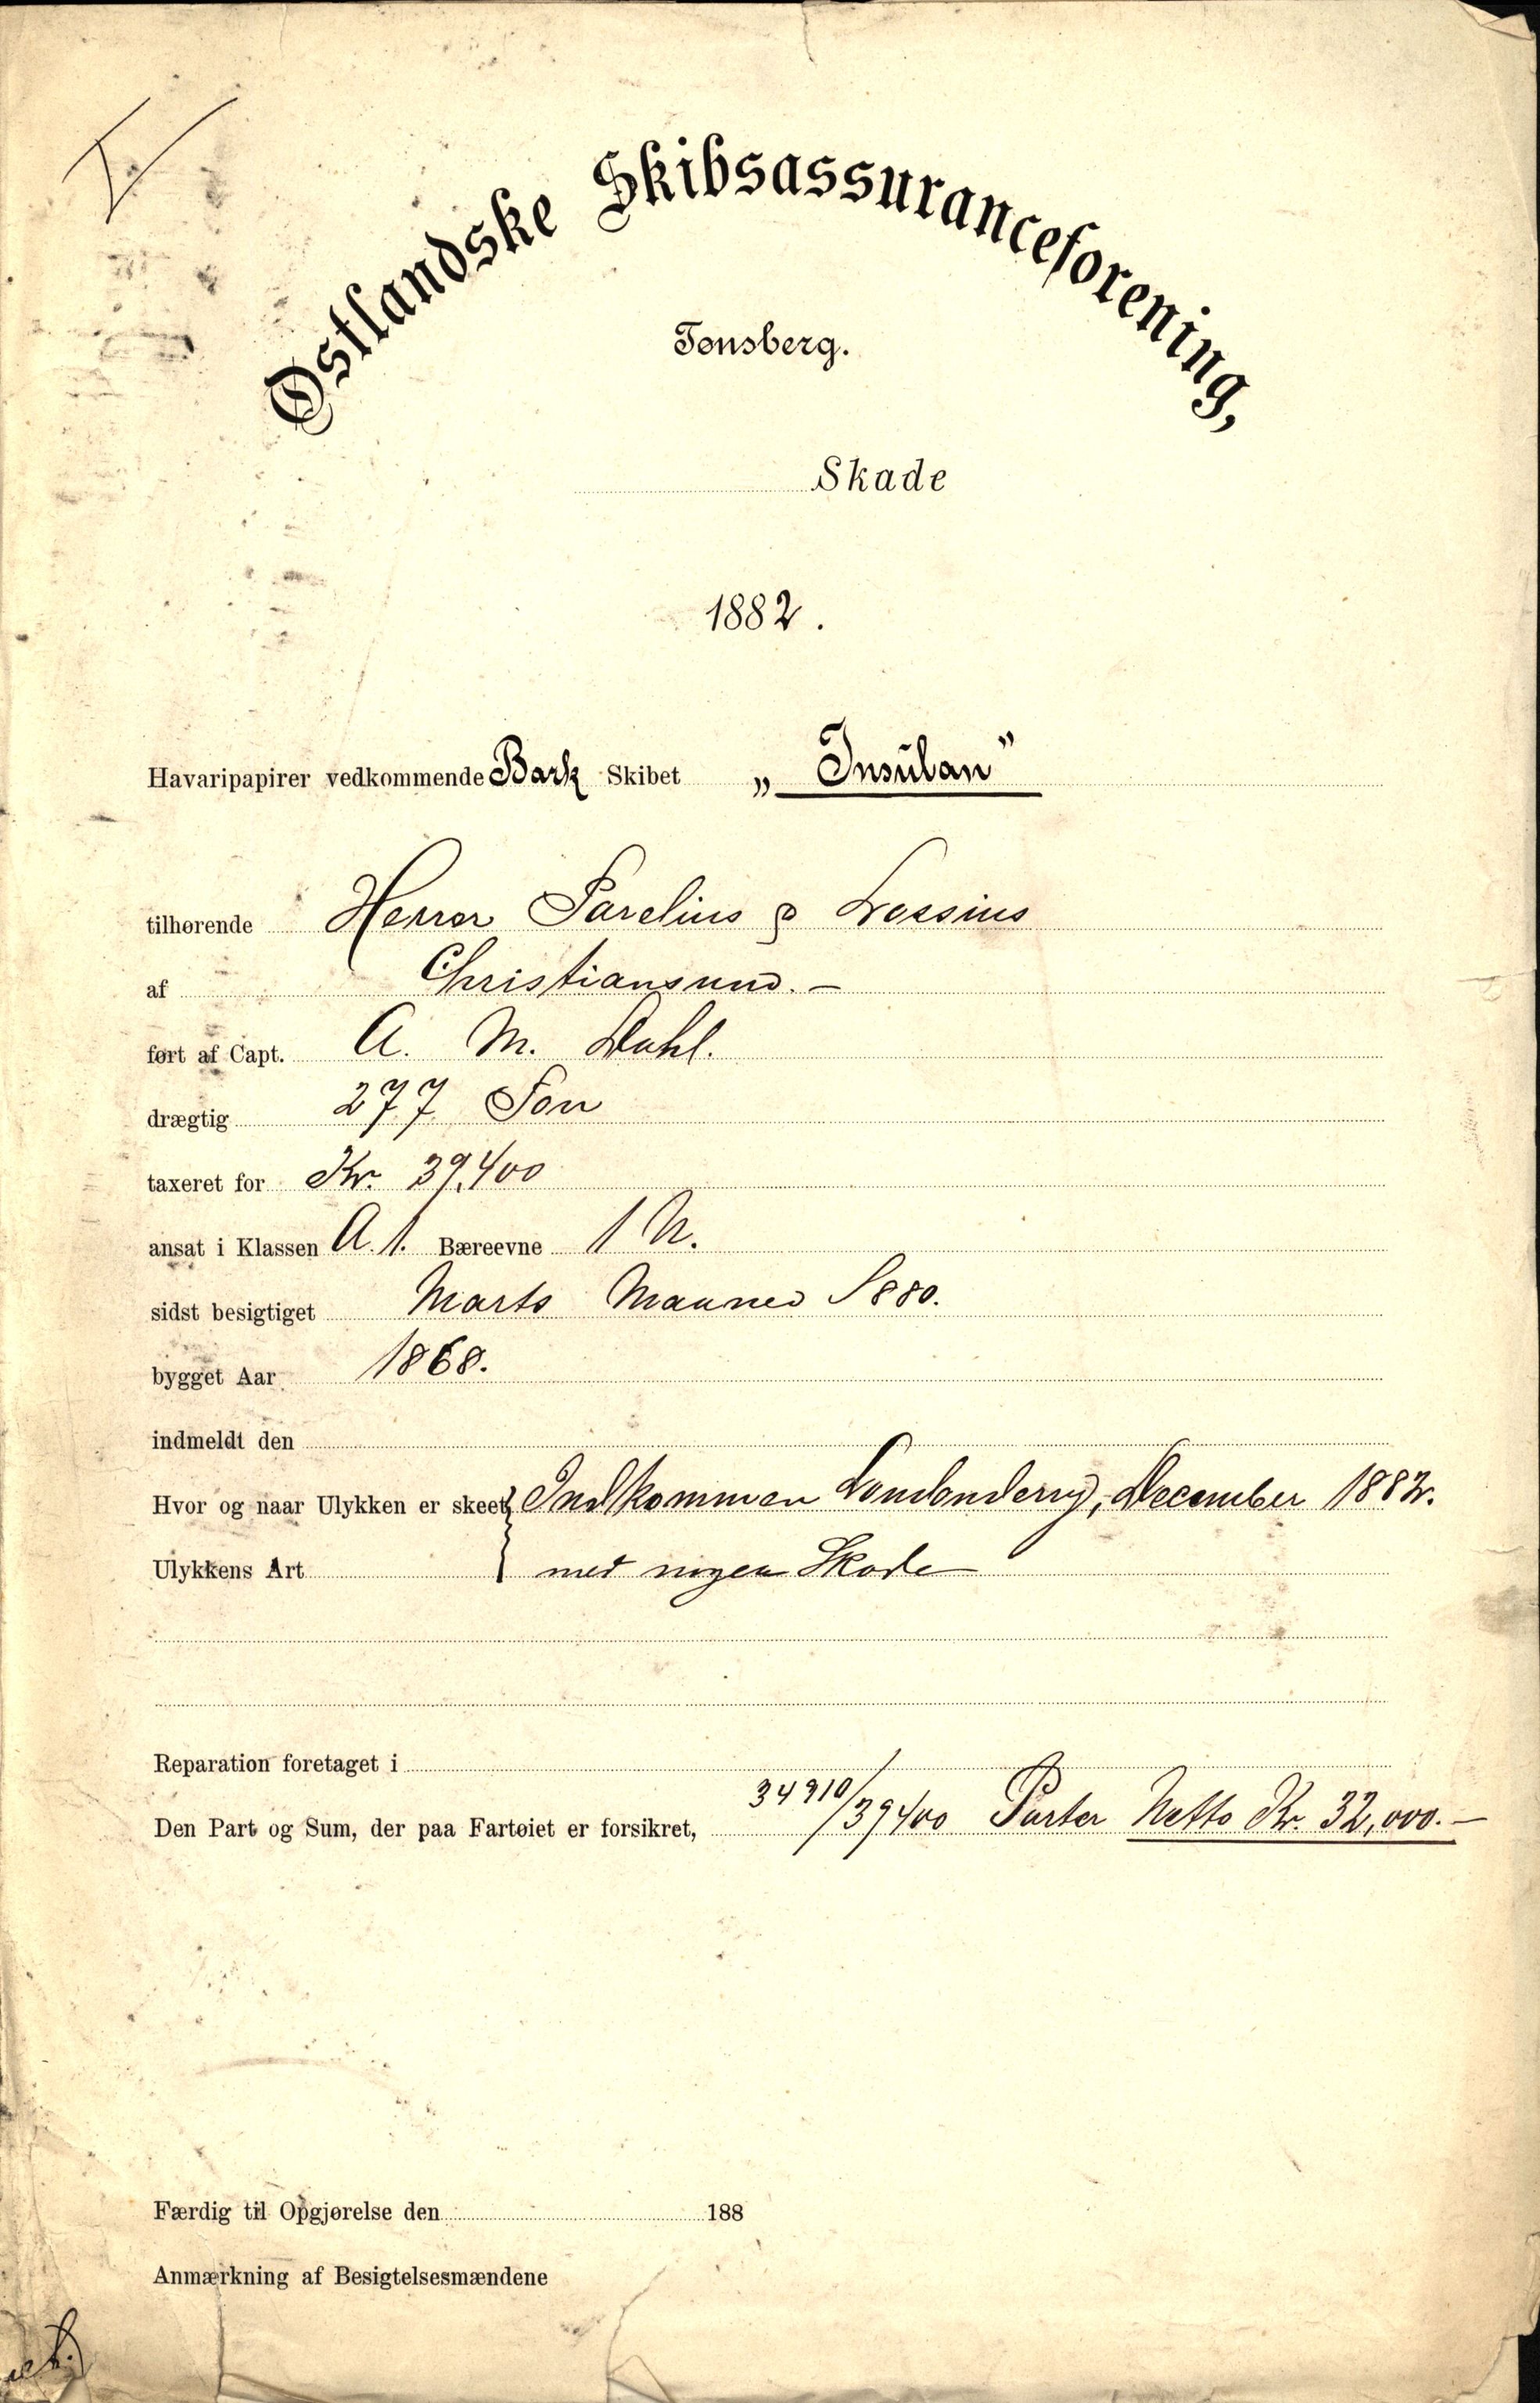 Østlandske Skibsassuranceforening,
Tønsberg.
Skade
1882.
Havaripapirer vedkommende Bark Skibet „Insulan”
tilhørende Herrer Parelius & Lossius
af Christiansund. –
ført af Capt. A. M. Dahl.
drægtig 277 Ton
taxeret for Kr. 39,400
ansat i Klassen A. 1. Bæreevne 1 N.
sidst besigtiget Marts Maaned 1880.
bygget Aar 1868.
indmeldt den
Hvor og naar Ulykken er skeet, Indkommen Londonderry, December 1882.
Ulykkens Art med nogen Skade
Reparation foretaget i
Den Part og Sum, der paa Fartøiet er forsikret, 34910/39400 Parter Netto Kr. 32,000. –
Færdig til Opgjørelse den 188
Anmærkning af Besigtelsesmændene